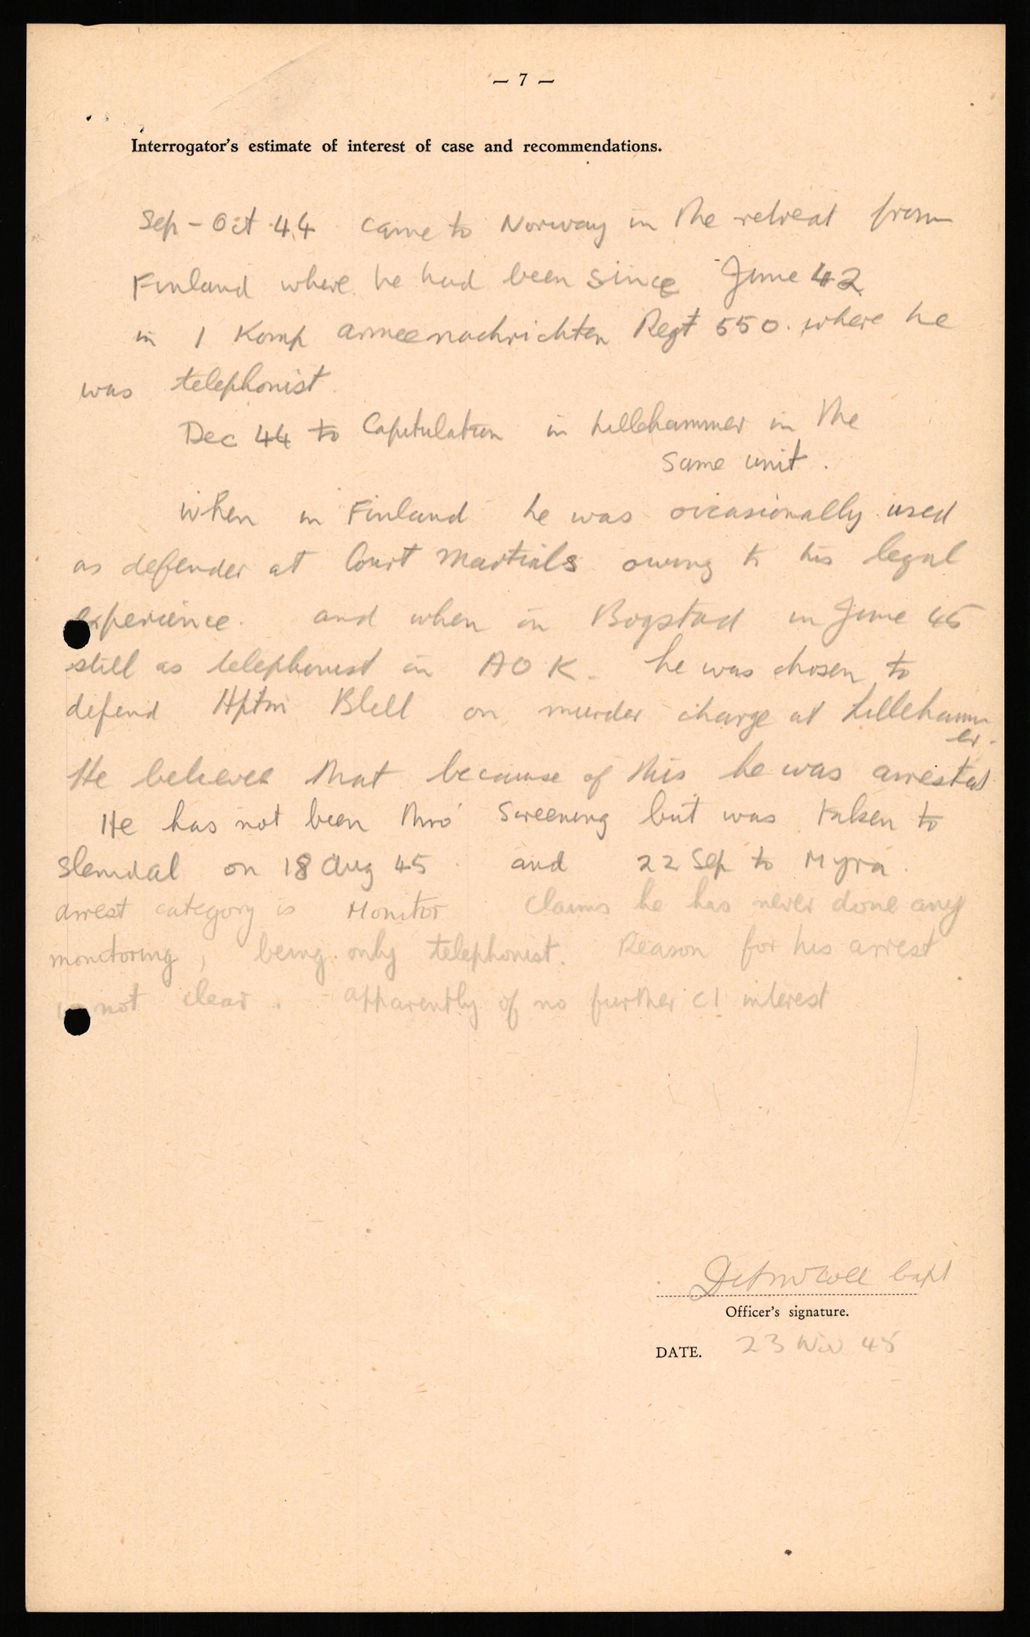 — 7 —
Interrogator's estimate of interest of case and recommendations.
Sep - Oct 44 came to Norway in the retreat from
Finland where he had been since June 42
in 1 Komp Armeenachrichten Regt 550. where he
was telephonist
Dec 44 to Capitulation in Lillehammer in the
same unit.
When in Finland he was occasionally used
as defender at Court Martials owing to his legal
experience. and when in Bogstad in June 45
still as telephonist in AOK. he was chosen to
defend Hptm Blell on murder charge at Lilleham
er.
He believes that because of this he was arrested
He has not been thro' Screening but was taken to
Slemdal on 18 Aug 45 and 22 Sep to Myra.
arrest category is Monitor Claims he has never done any
monitoring, being only telephonist. Reason for his arrest
is not clear. Apparently of no further CI interest
Capt
Officer's signature.
DATE. 23 Nov 45